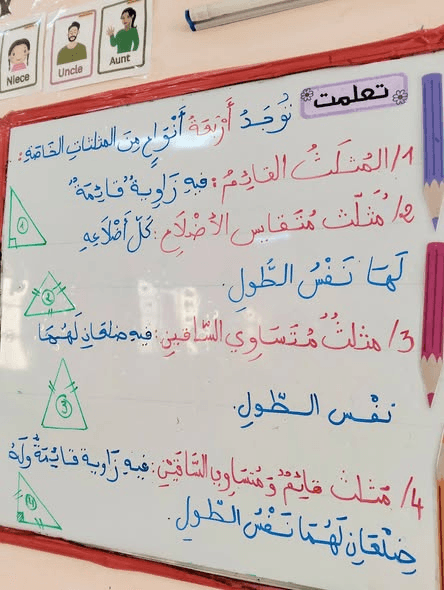 Niece
Uncle
Aunt
تعلمت
تُوجَدُ أَرْبَعَةُ أَنْوَاعٍ مِنَ المثلثات الخَاصَّةِ:
1/ المُثَلَّثُ القَائِمُ: فِيهِ زَاوِيَةٌ "قَائِمَةٌ"
1
2/ مُثَلَّثٌ مُتَقَايِسُ الأَضْلَاعِ: كُلُّ أَضْلَاعِهِ
لَهَا نَفْسُ الطُّولِ.
2
3/ مثلثٌ مُتَسَاوِي السَّاقَيْنِ: فيه ضلعَانِ لَهُمَا
نفْس الطّولِ.
3
4/ مثلث قائِمٌ وَ مُتَسَاوِي السَّاقَيْنِ: فِيهِ زَاوية قَائِمَةٌ وَلَهُ
ضِلْعَانِ لَهُمَا نَفْسُ الطُّولِ.
4